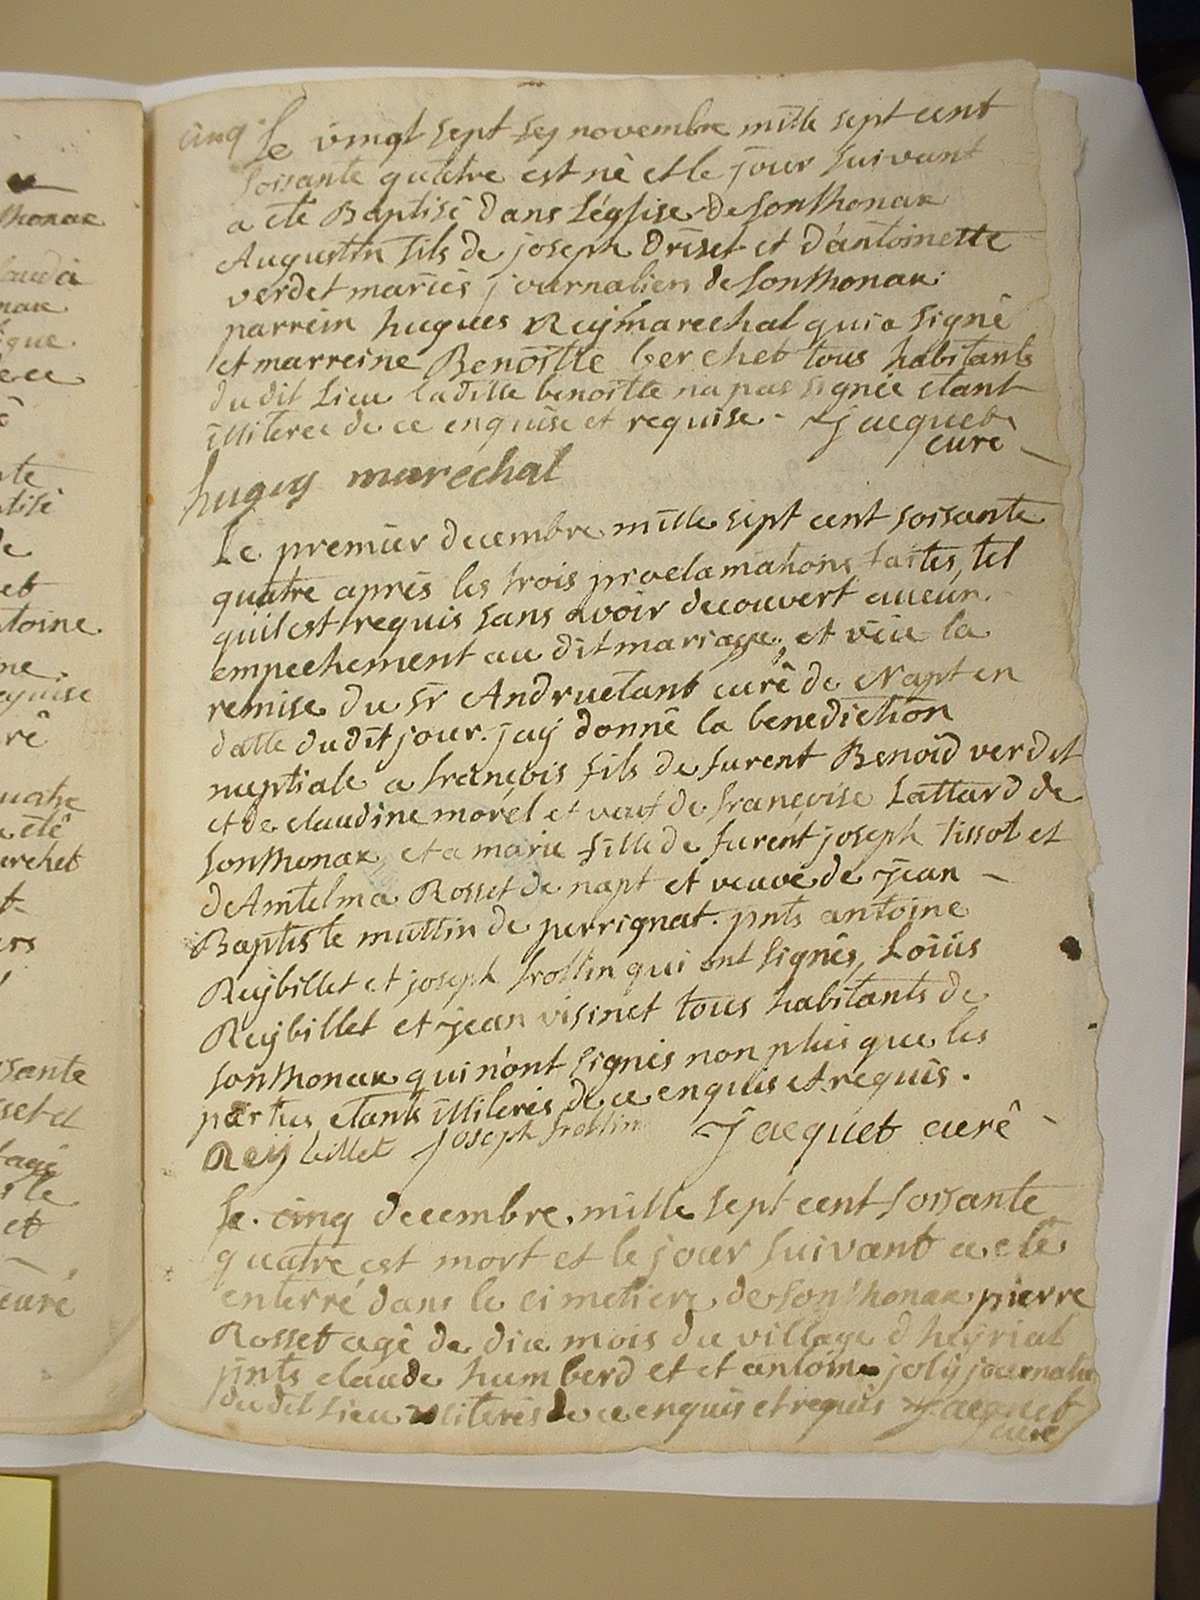 cinq
Le vingt sept sey novembre mille sept cent
soissante quatre est nê et le jour suivant
a etê Baptisê dans l'église de sonthonax
Augustin fils de joseph Driset et d'antoinette
verdet mariés journaliers de sonthonax
parrein hugues Reymarechal qui a signê
et marreine Benoitte berchet tous habitants
du dit Lieu ladille benoitte na pas signée etant
illiterée de ce enquise et requise - Jacquet
curé
hugeg maréchal
Le premier decembre mille sept cent soissante
quatre aprés les trois proclamations faites, tel
quil est requis sans avoir decouvert aucun
empechement au dit mariage, et vüe la
remise du sr Andruetant curê de Napt en
datte dudit jour. jay donnê la benediction
nuptiale a françois fils de furent Benoid verdet
et de claudine morél et veuf de françoise Lattard de
sonthonax, et a marie fille de furent joseph tissot et
de Amtelma Rosset de napt et veuve de jean
Baptiste muttin de perrignat. pnts antoine
Reybillet et joseph frollin qui ont signés, Loüis
Reybillet et jean visinet tous habitants de
sonthonax qui n'ont signés non plus que les
parties etants illiterés de ce enquis et requis.
Rey billet joseph frollin Jacquet curê
Le cinq decembre mille sept cent soissante
quatre est mort et le jour suivant a etê
enterré dans le cimetiere de sonthonax pierre
Rosset agê de dix mois du village d heyriat
pnts claude humberd et et antoine joly journalie
du dit Lieu illiterés de ce enquis et requis Jacquet
curé
thonax
nax
et
toine
curé
quatre
etê
erchet